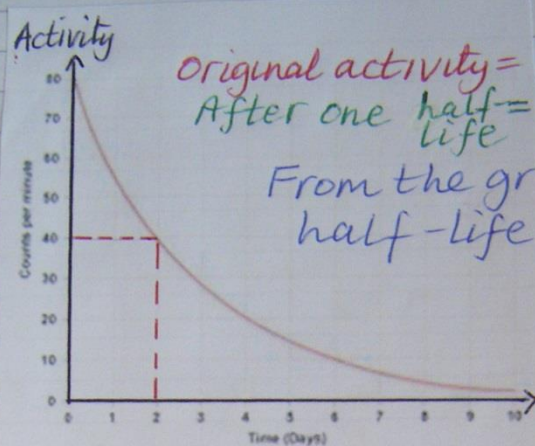 Activity
Original activity=
After one half-=
life
From the gr
half-life
Counts per minute
80
70
60
50
40
30
20
10
0
0 1 2 3 4 5 6 7 8 9 10
Time (Days)